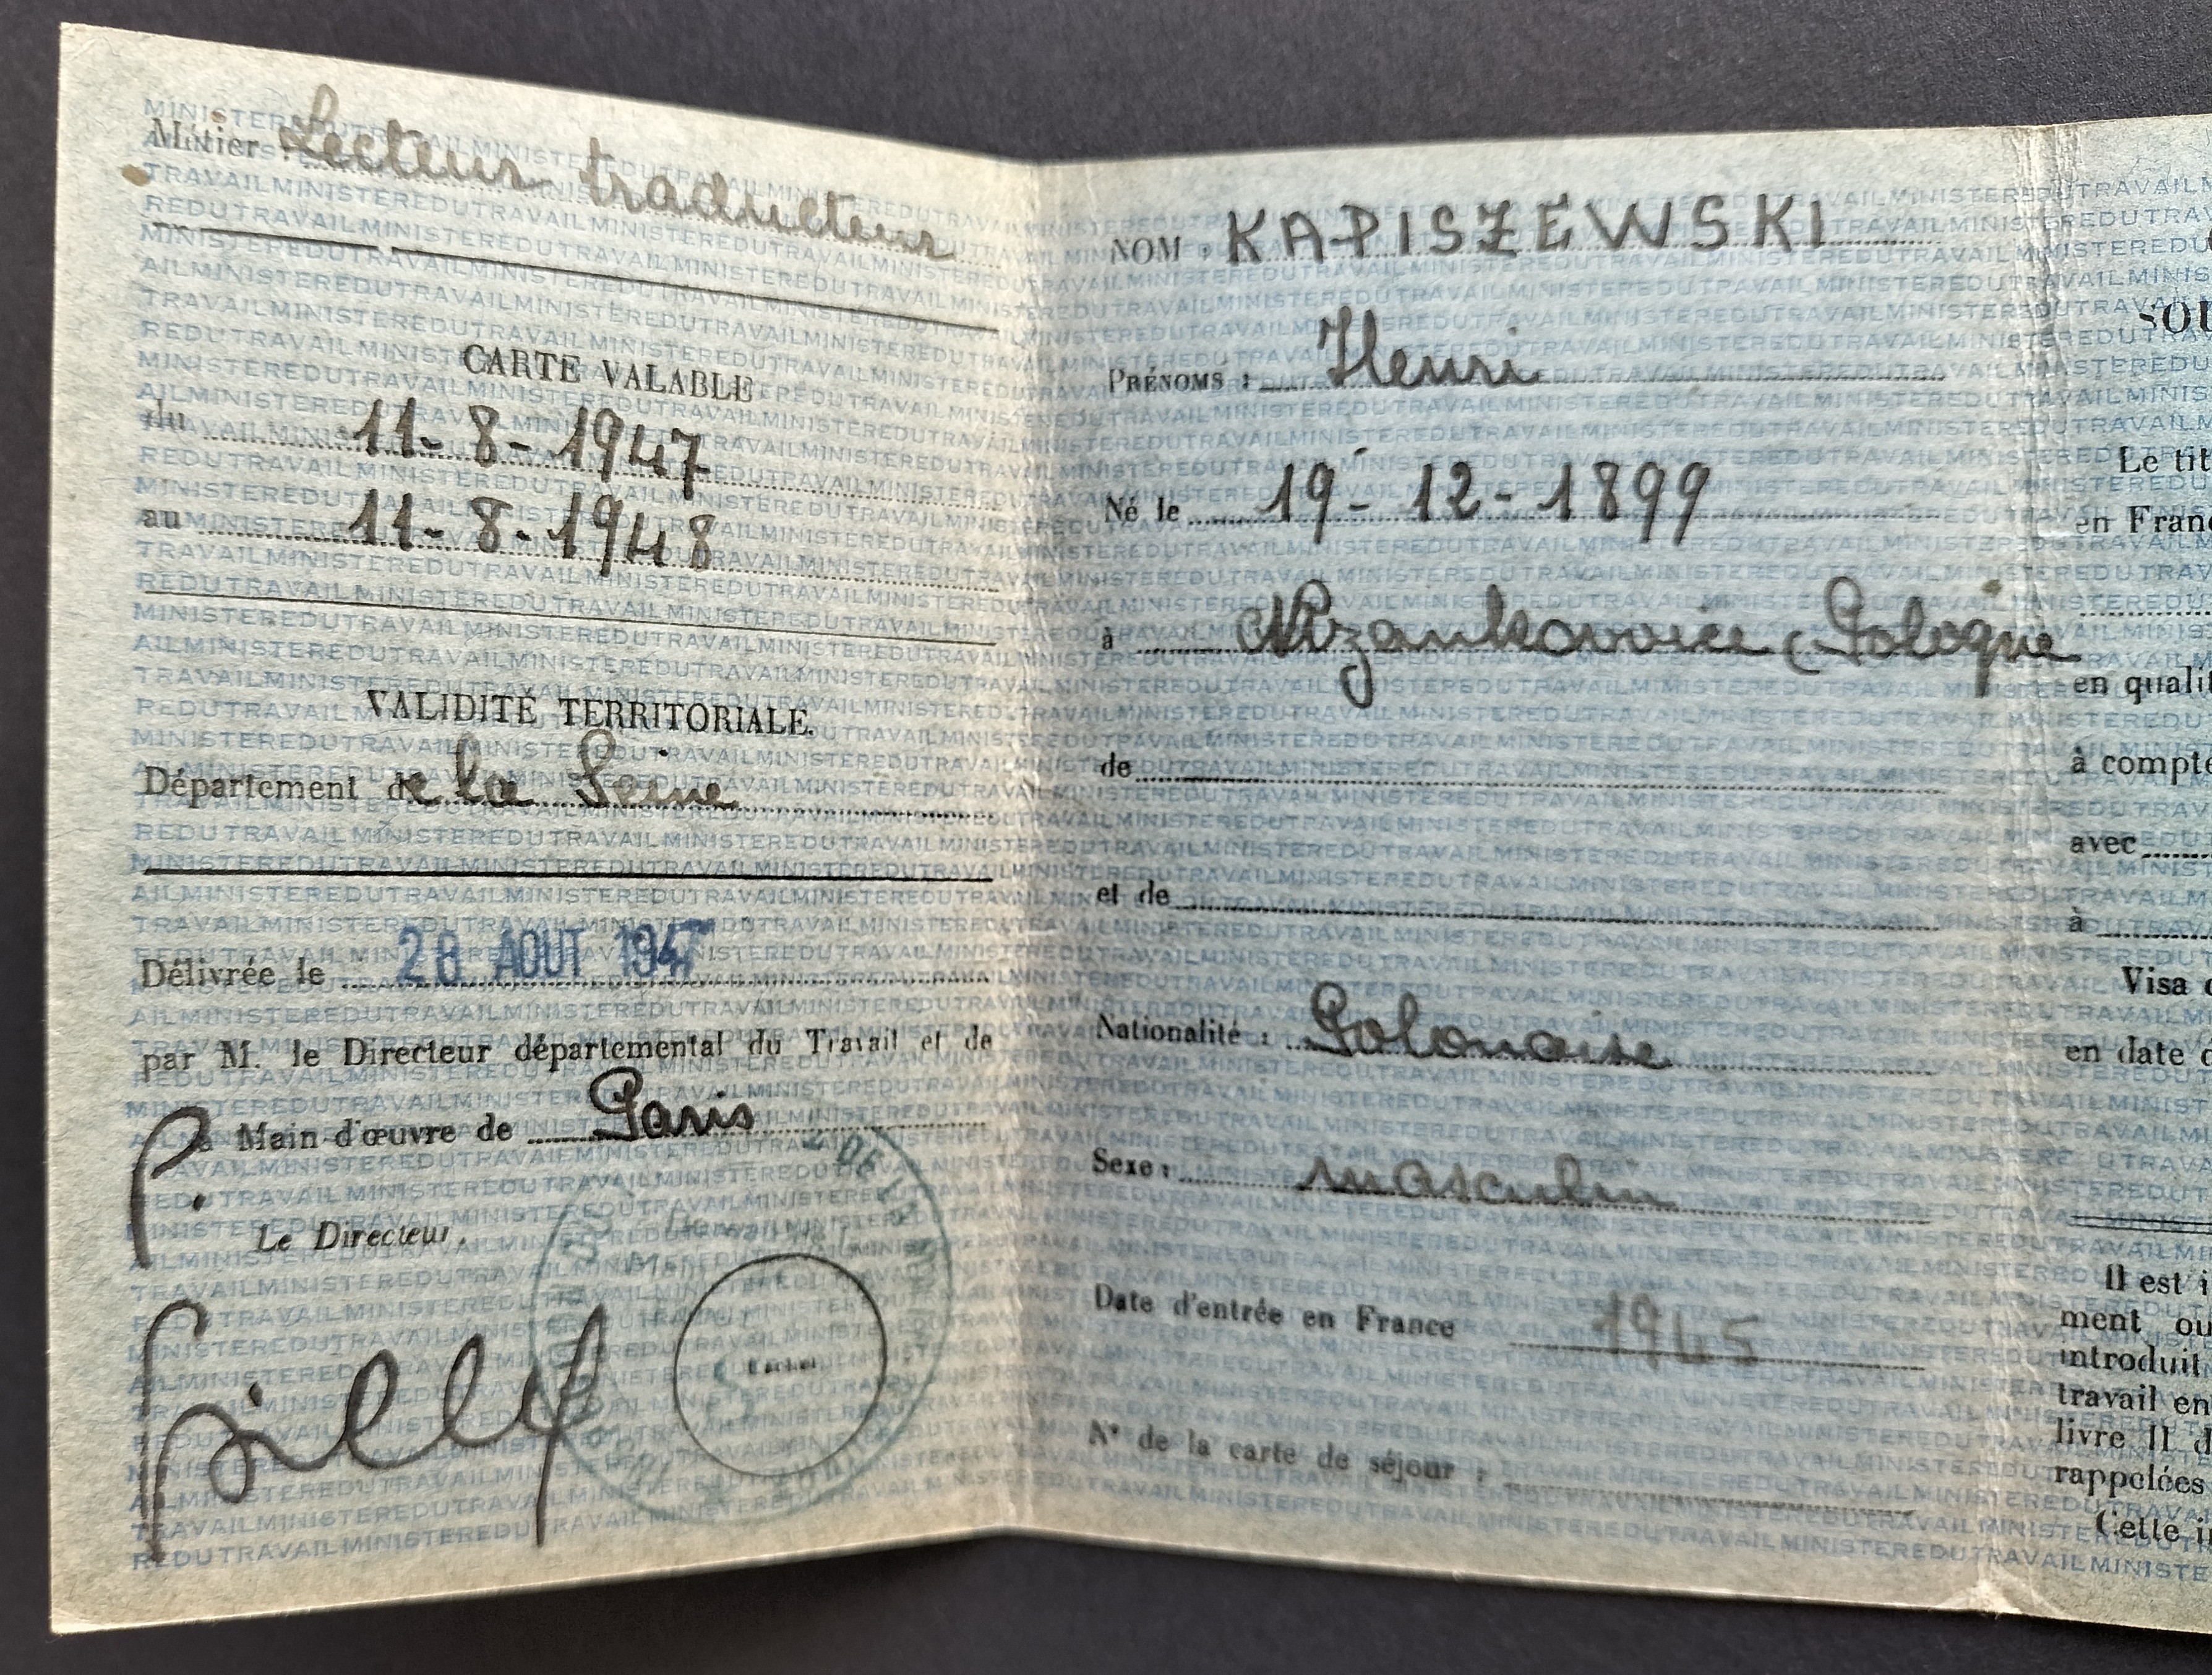 Métier : Lecteur traducteur
CARTE VALABLE
du 11-8-1947
au 11-8-1948
VALIDITÉ TERRITORIALE.
Département de la Seine
Délivrée le 28 AOUT 1947
par M. le Directeur départemental du Travail et de
la Main-d'œuvre de Paris
P.
Le Directeur,
Cachet
DE LA
NOM : KAPISZEWSKI
PRÉNOMS : Henri
Né le 19-12-1899
à Nizankovoice (Pologne
de
et de
Nationalité : Polonaise
Sexe : masculin
Date d'entrée en France 1945
N° de la carte de séjour :
SOU
Le tit
en Franc
en qualit
à compte
avec
à
Visa d
en date d
Il est i
ment ou
introduit
travail en
livre II d
rappelées
Cette i
MINISTEREDUTRAVAILMINISTEREDUTRAVAILMINISTEREDUTRAVAIL